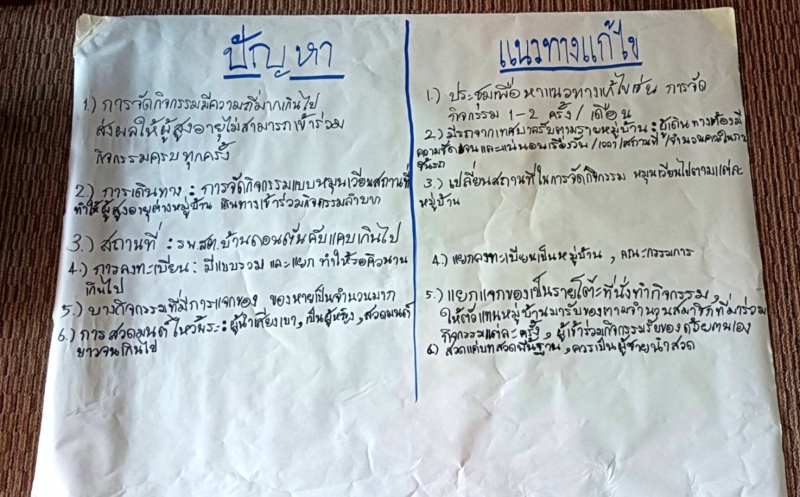 ปัญหา
1.) การจัดกิจกรรมมีความถี่มากเกินไป
ส่งผลให้ผู้สูงอายุไม่สามารถเข้าร่วม
กิจกรรมครบทุกครั้ง
2) การเดินทาง : การจัดกิจกรรมแบบหมุนเวียนสถานที่
ทำให้ผู้สูงอายุต่างหมู่บ้าน เดินทางเข้าร่วมกิจกรรมลำบาก
3.) สถานที่ : รพ.สต.บ้านดอนตันคับแคบเกินไป
4.) การลงทะเบียน : มีแบบรวม และแยก ทำให้รอคิวนาน
เกินไป
5.) บางกิจกรรมที่มีการแจกของ ของหายเป็นจำนวนมาก
6.) การสวดมนต์ไหว้พระ : ผู้นำเสียงเบา, เป็นผู้หญิง, สวดมนต์
ยาวจนเกินไป
แนวทางแก้ไข
1.) ประชุมเพื่อหาแนวทางแก้ไขเช่น การจัด
กิจกรรม 1-2 ครั้ง/เดือน
2) มีรถจากเทศบาลรับตามรายหมู่บ้าน : ผู้เดินทางต้องมี
ความชัดเจนและแน่นอนเรื่องวัน/เวลา/สถานที่/จำนวนคนในการ
ขึ้นรถ
3.) เปลี่ยนสถานที่ในการจัดกิจกรรม หมุนเวียนไปตามแต่ละ
หมู่บ้าน
4.) แยกลงทะเบียนเป็นหมู่บ้าน, คณะกรรมการ
5.) แยกแจกของเป็นรายโต๊ะที่นั่งทำกิจกรรม,
ให้ตัวแทนหมู่บ้านมารับของตามจำนวนสมาชิกที่มาร่วม
กิจกรรมแต่ละครั้ง, ผู้เข้าร่วมกิจกรรมรับของด้วยตนเอง
6) สวดแค่บทสวดพื้นฐาน, ควรเป็นผู้ชายนำสวด